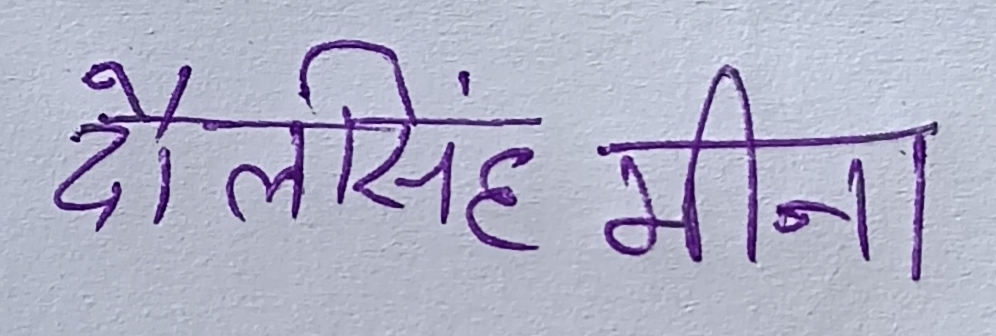 दौलसिंह मीना